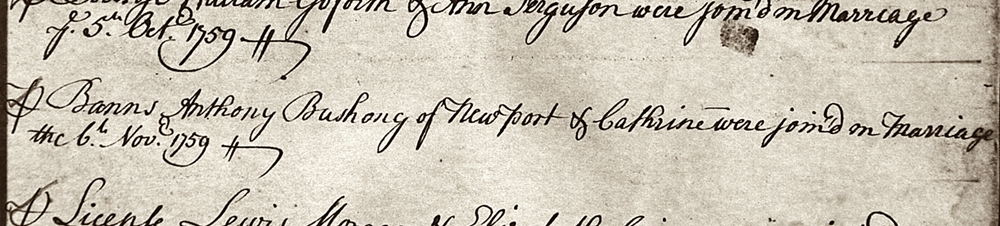 Goforth & Ann Ferguson were join'd in Marriage
ye. 5th. Octr. 1759
⅌ Banns Anthony Bushong of Newport & Cathrine were join'd in Marriage
the 6th. Novr. 1759
⅌ Licence Lewis